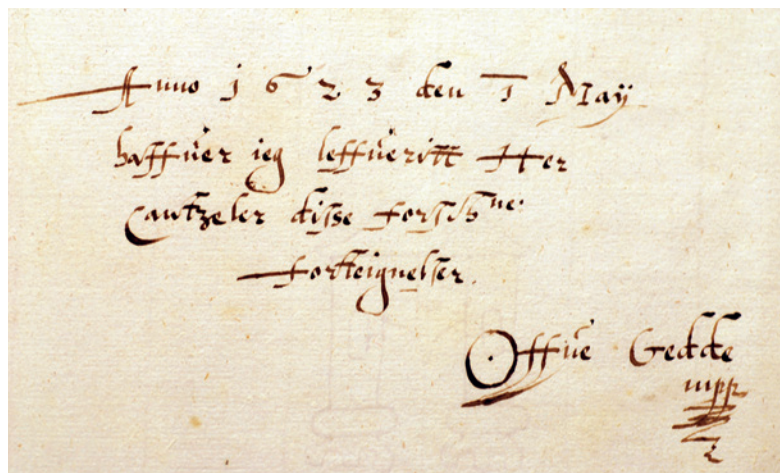 Anno 1623 den 1 May
haffuer ieg leffueritt Her
Cantzeler disse forsch ne:
fortteignelser.
Offue Gedde
mpp